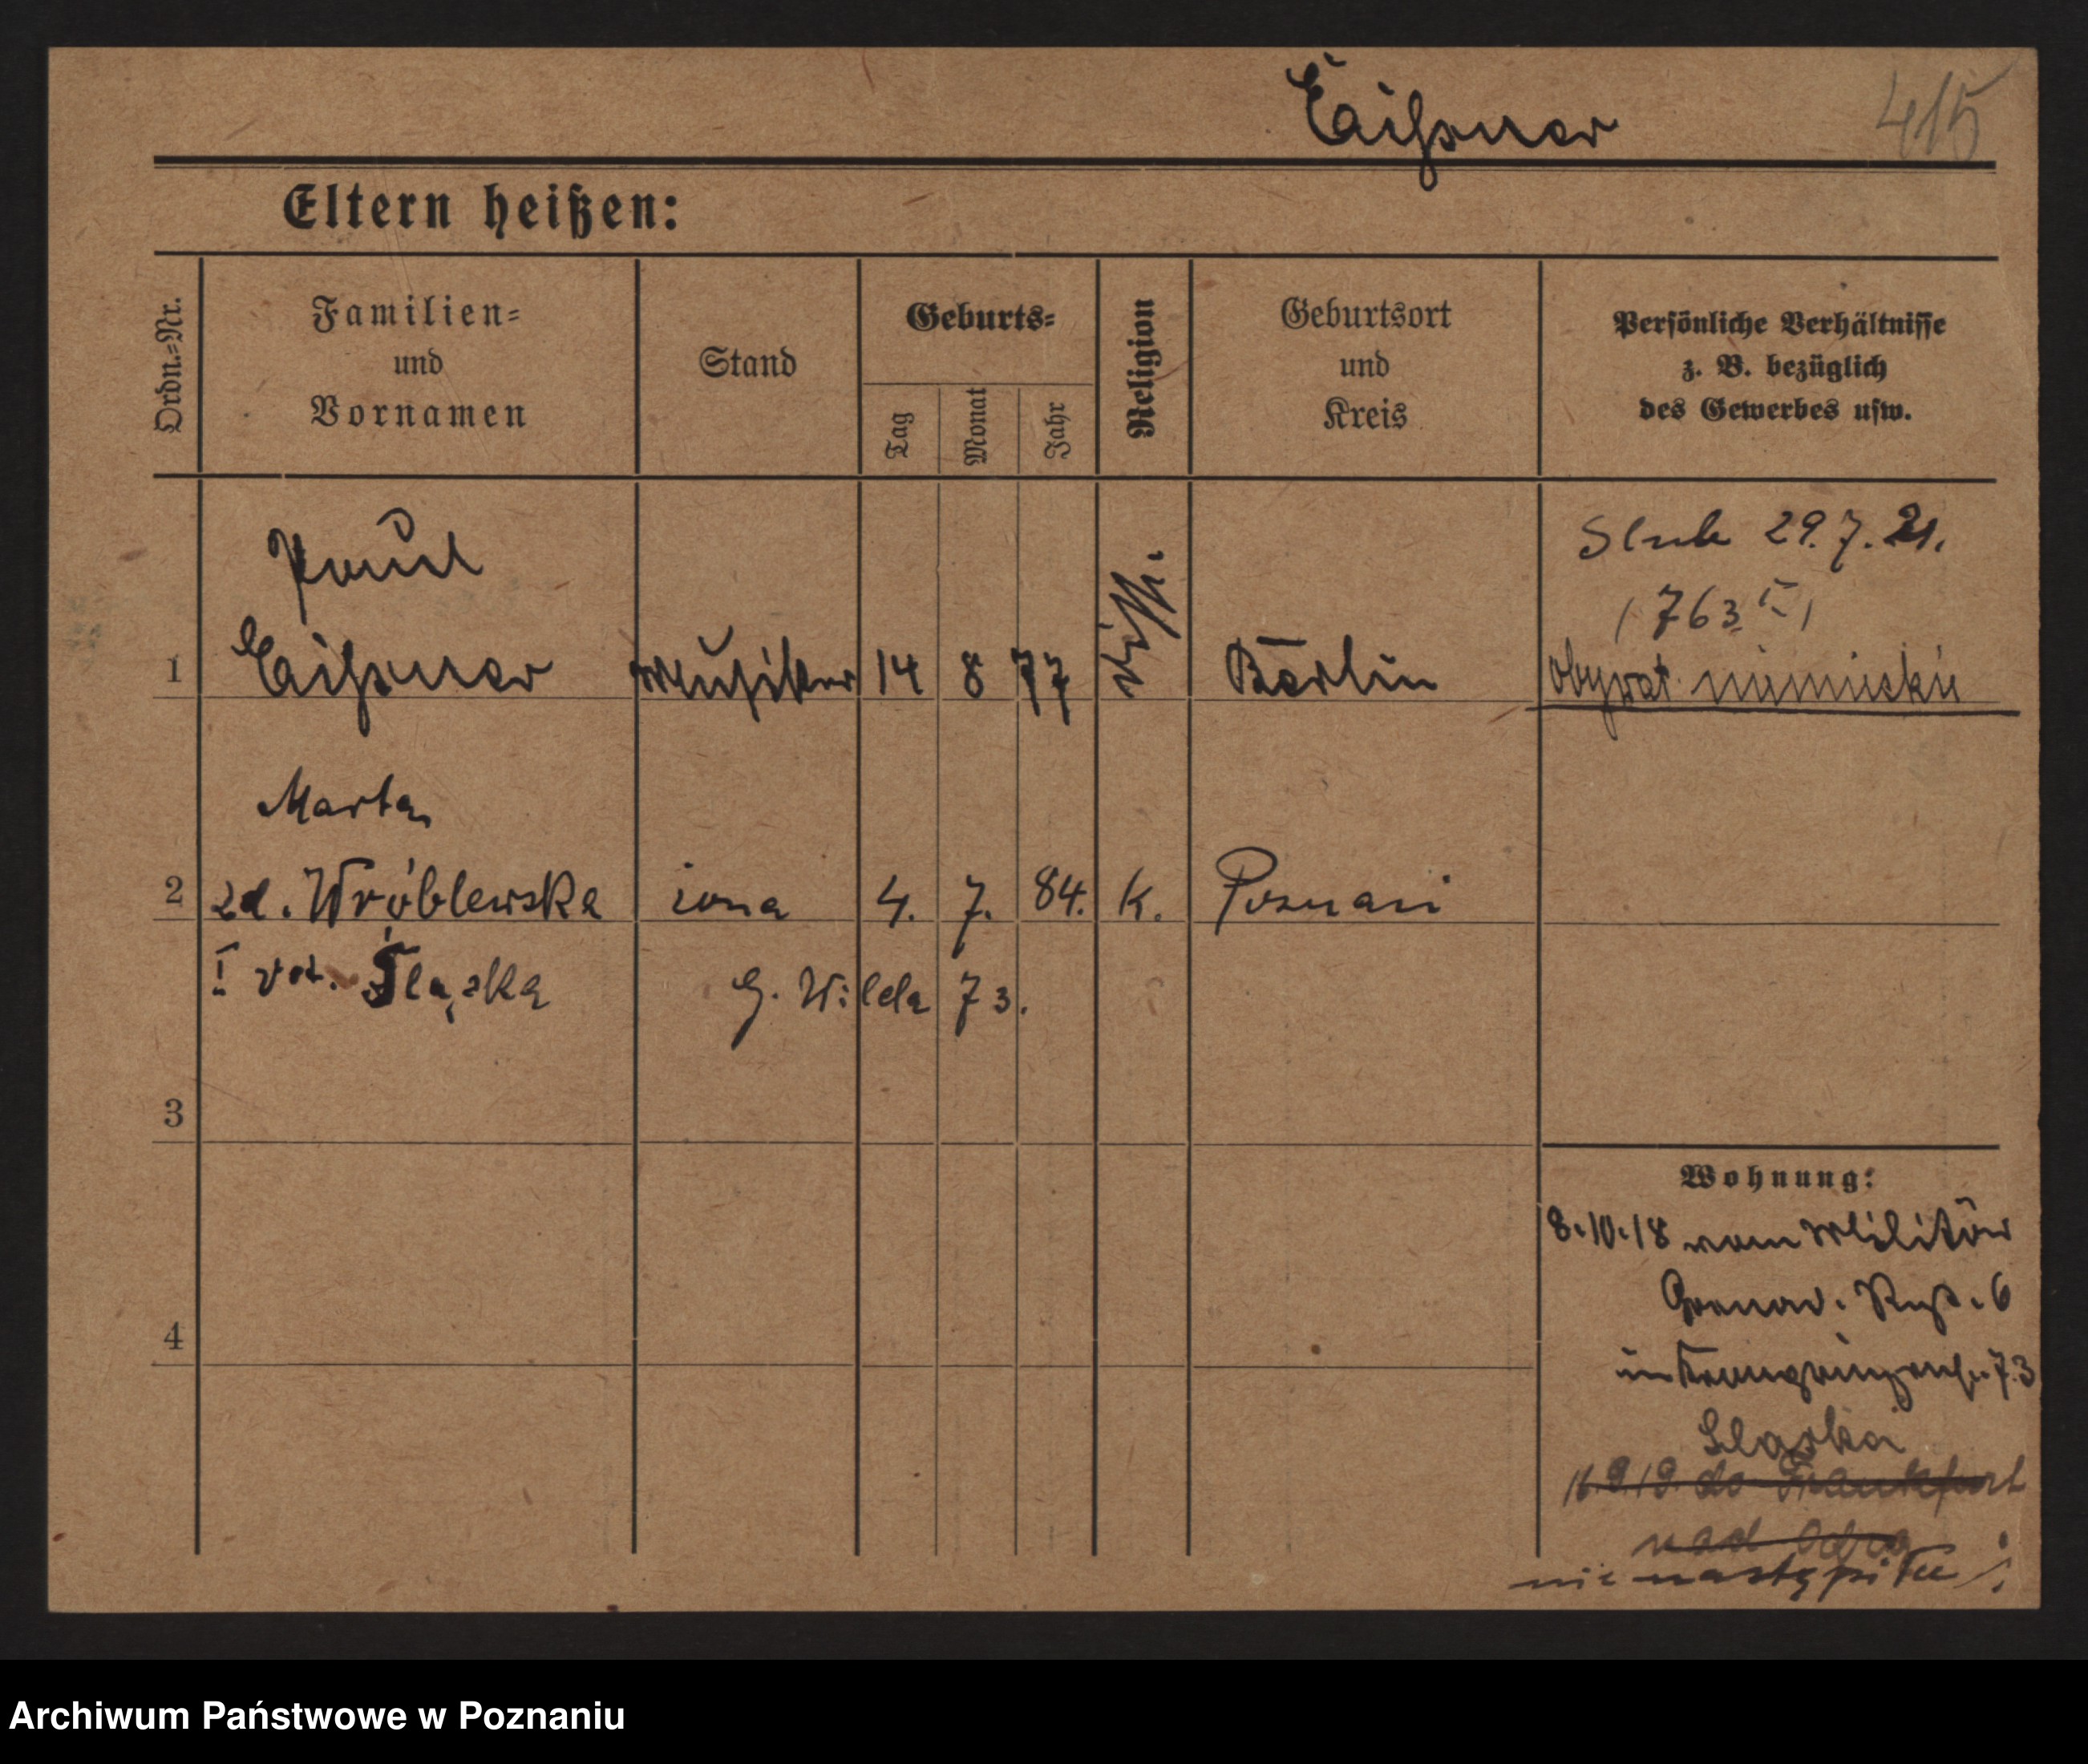 Eißner 415
Eltern heißen:
Ordn.=Nr.
Familien=
und
Vornamen
Stand
Geburts=
Tag
Monat
Jahr
Religion
Geburtsort
und
Kreis
Persönliche Verhältnisse
z. B. bezüglich
des Gewerbes usw.
Paul
1 Eißner Musiker 14 8 77 diss. Berlin
Slub 29.7.21.
(763 I)
obywat niemiecki
Marta
2 zd. Wróblewska żona 4. 7. 84. k. Poznań
I vot. Śląska G. Wilda 73.
3
4
Wohnung:
8.10.18 vom Militär
Grenad. Rgt. 6
73
16.9.19. do Frankfurt
nad Odrą
nie nastąpiło
Archiwum Państwowe w Poznaniu